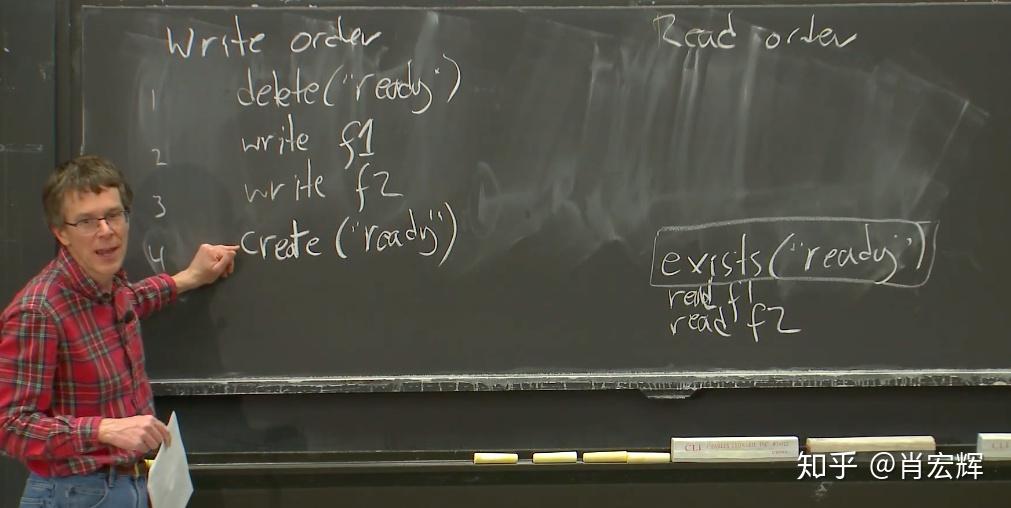 Write order
1 delete("ready")
2 write f1
3 write f2
4 create("ready")
Read order
exists("ready")
read f1
read f2
知乎 @肖宏辉